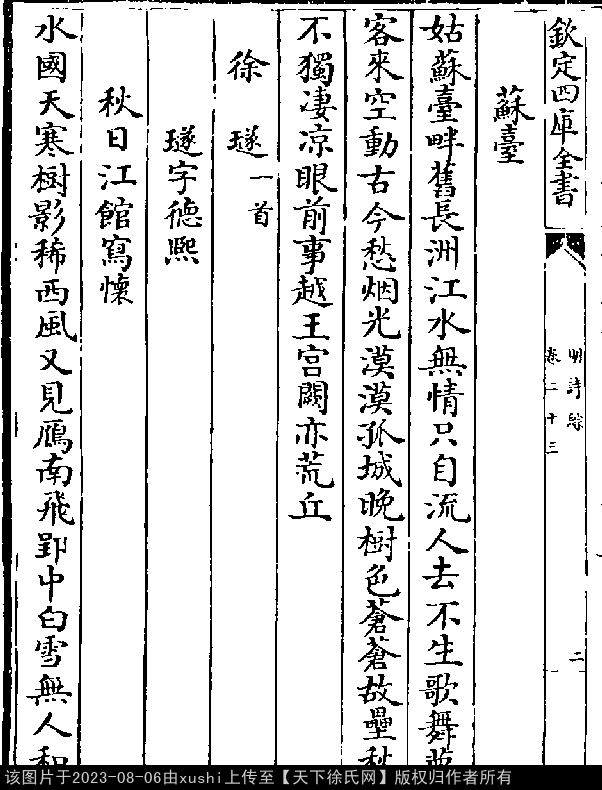 欽定四庫全書
明詩綜
卷二十三
二
蘇臺
姑蘇臺畔舊長洲江水無情只自流人去不生歌舞
客來空動古今愁烟光漠漠孤城晚樹色蒼蒼故壘秋
不獨凄凉眼前事越王宫闕亦荒丘
徐璲一首
璲字德熙
秋日江館寫懷
水國天寒樹影稀西風又見鴈南飛郢中白雪無人和
该图片于2023-08-06由xushi上传至【天下徐氏网】版权归作者所有